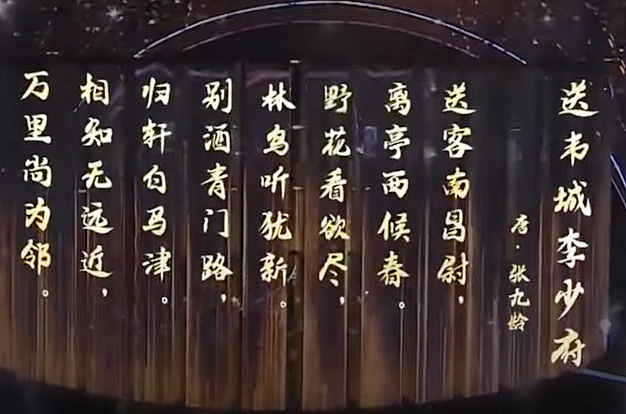 送韦城李少府
唐·张九龄
送客南昌尉，
离亭西候春。
野花看欲尽，
林鸟听犹新。
别酒青门路，
归轩白马津。
相知无远近，
万里尚为邻。